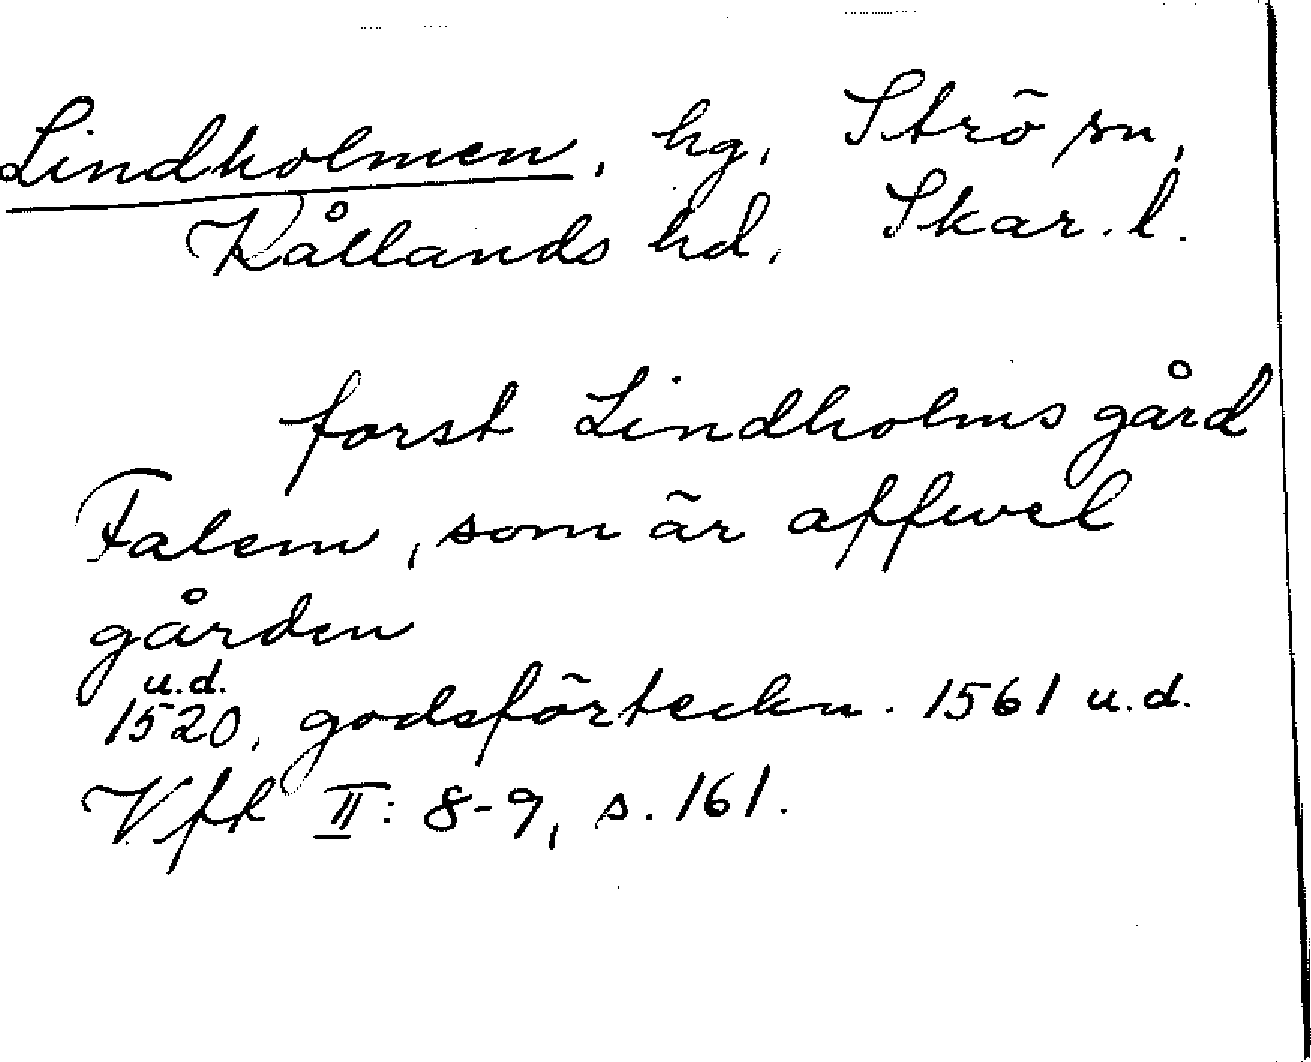 Lindholmen, hg, Strö sn,
Kållands hd, Skar. l.
forst Lindholms gård
Falem, som är affwel
gården
u.d.
1520, godsförteckn. 1561 u.d.
Vfk II: 8-9, s. 161.